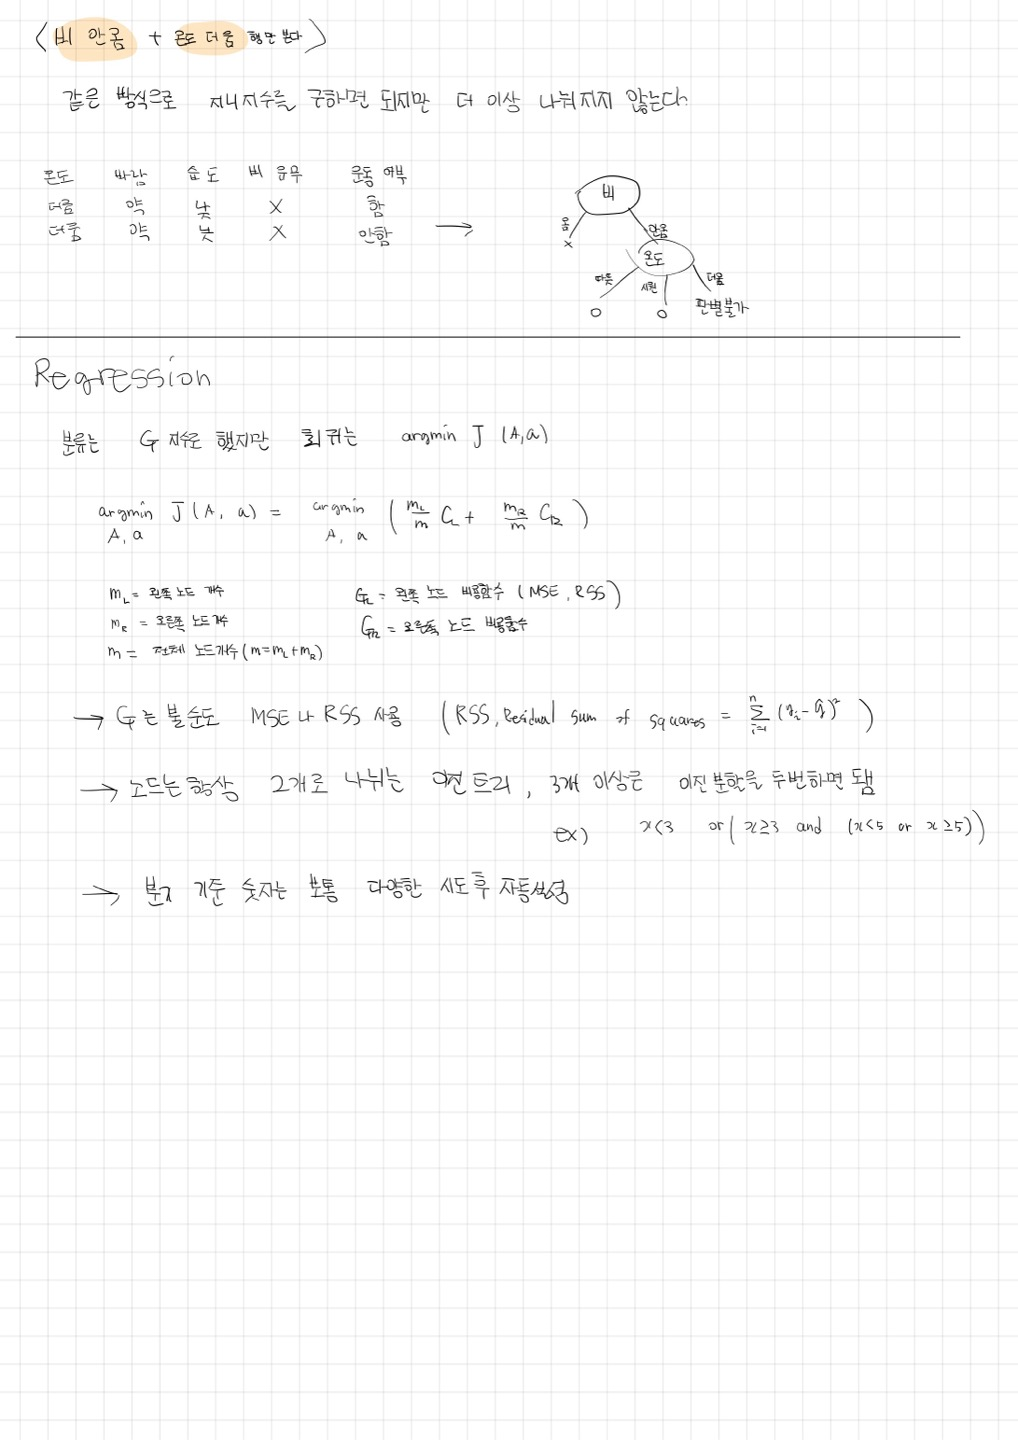 <비 안옴 + 온도 더움 행만 본다>
같은 방식으로 지니지수를 구하면 되지만 더 이상 나눠지지 않는다.
온도 바람 습도 비 유무 운동 여부
더움 약 낮 X 함
더움 약 낮 X 안함 →
비
옴 안옴
x 온도
따뜻 시원 더움
O O 판별불가
Regression
분류는 G 지수로 했지만 회귀는 argmin J (A,a)
argmin J(A, a) = argmin ( m_L/m G_L + m_R/m G_R )
A, a A, a
m_L = 왼쪽 노드 개수 G_L = 왼쪽 노드 비용함수 (MSE, RSS)
m_R = 오른쪽 노드개수 G_R = 오른쪽 노드 비용함수
m = 전체 노드개수 (m=m_L+m_R)
→ G는 불순도 MSE나 RSS 사용 (RSS, Residual sum of squares = Σ_{i=1}^{n} (y_i - ŷ)²)
→ 노드는 항상 2개로 나뉘는 이진트리, 3개 이상은 이진분할을 두번하면 됨
ex) x<3 or (x≥3 and (x<5 or x≥5))
→ 분기 기준 숫자는 보통 다양한 시도후 자동설정